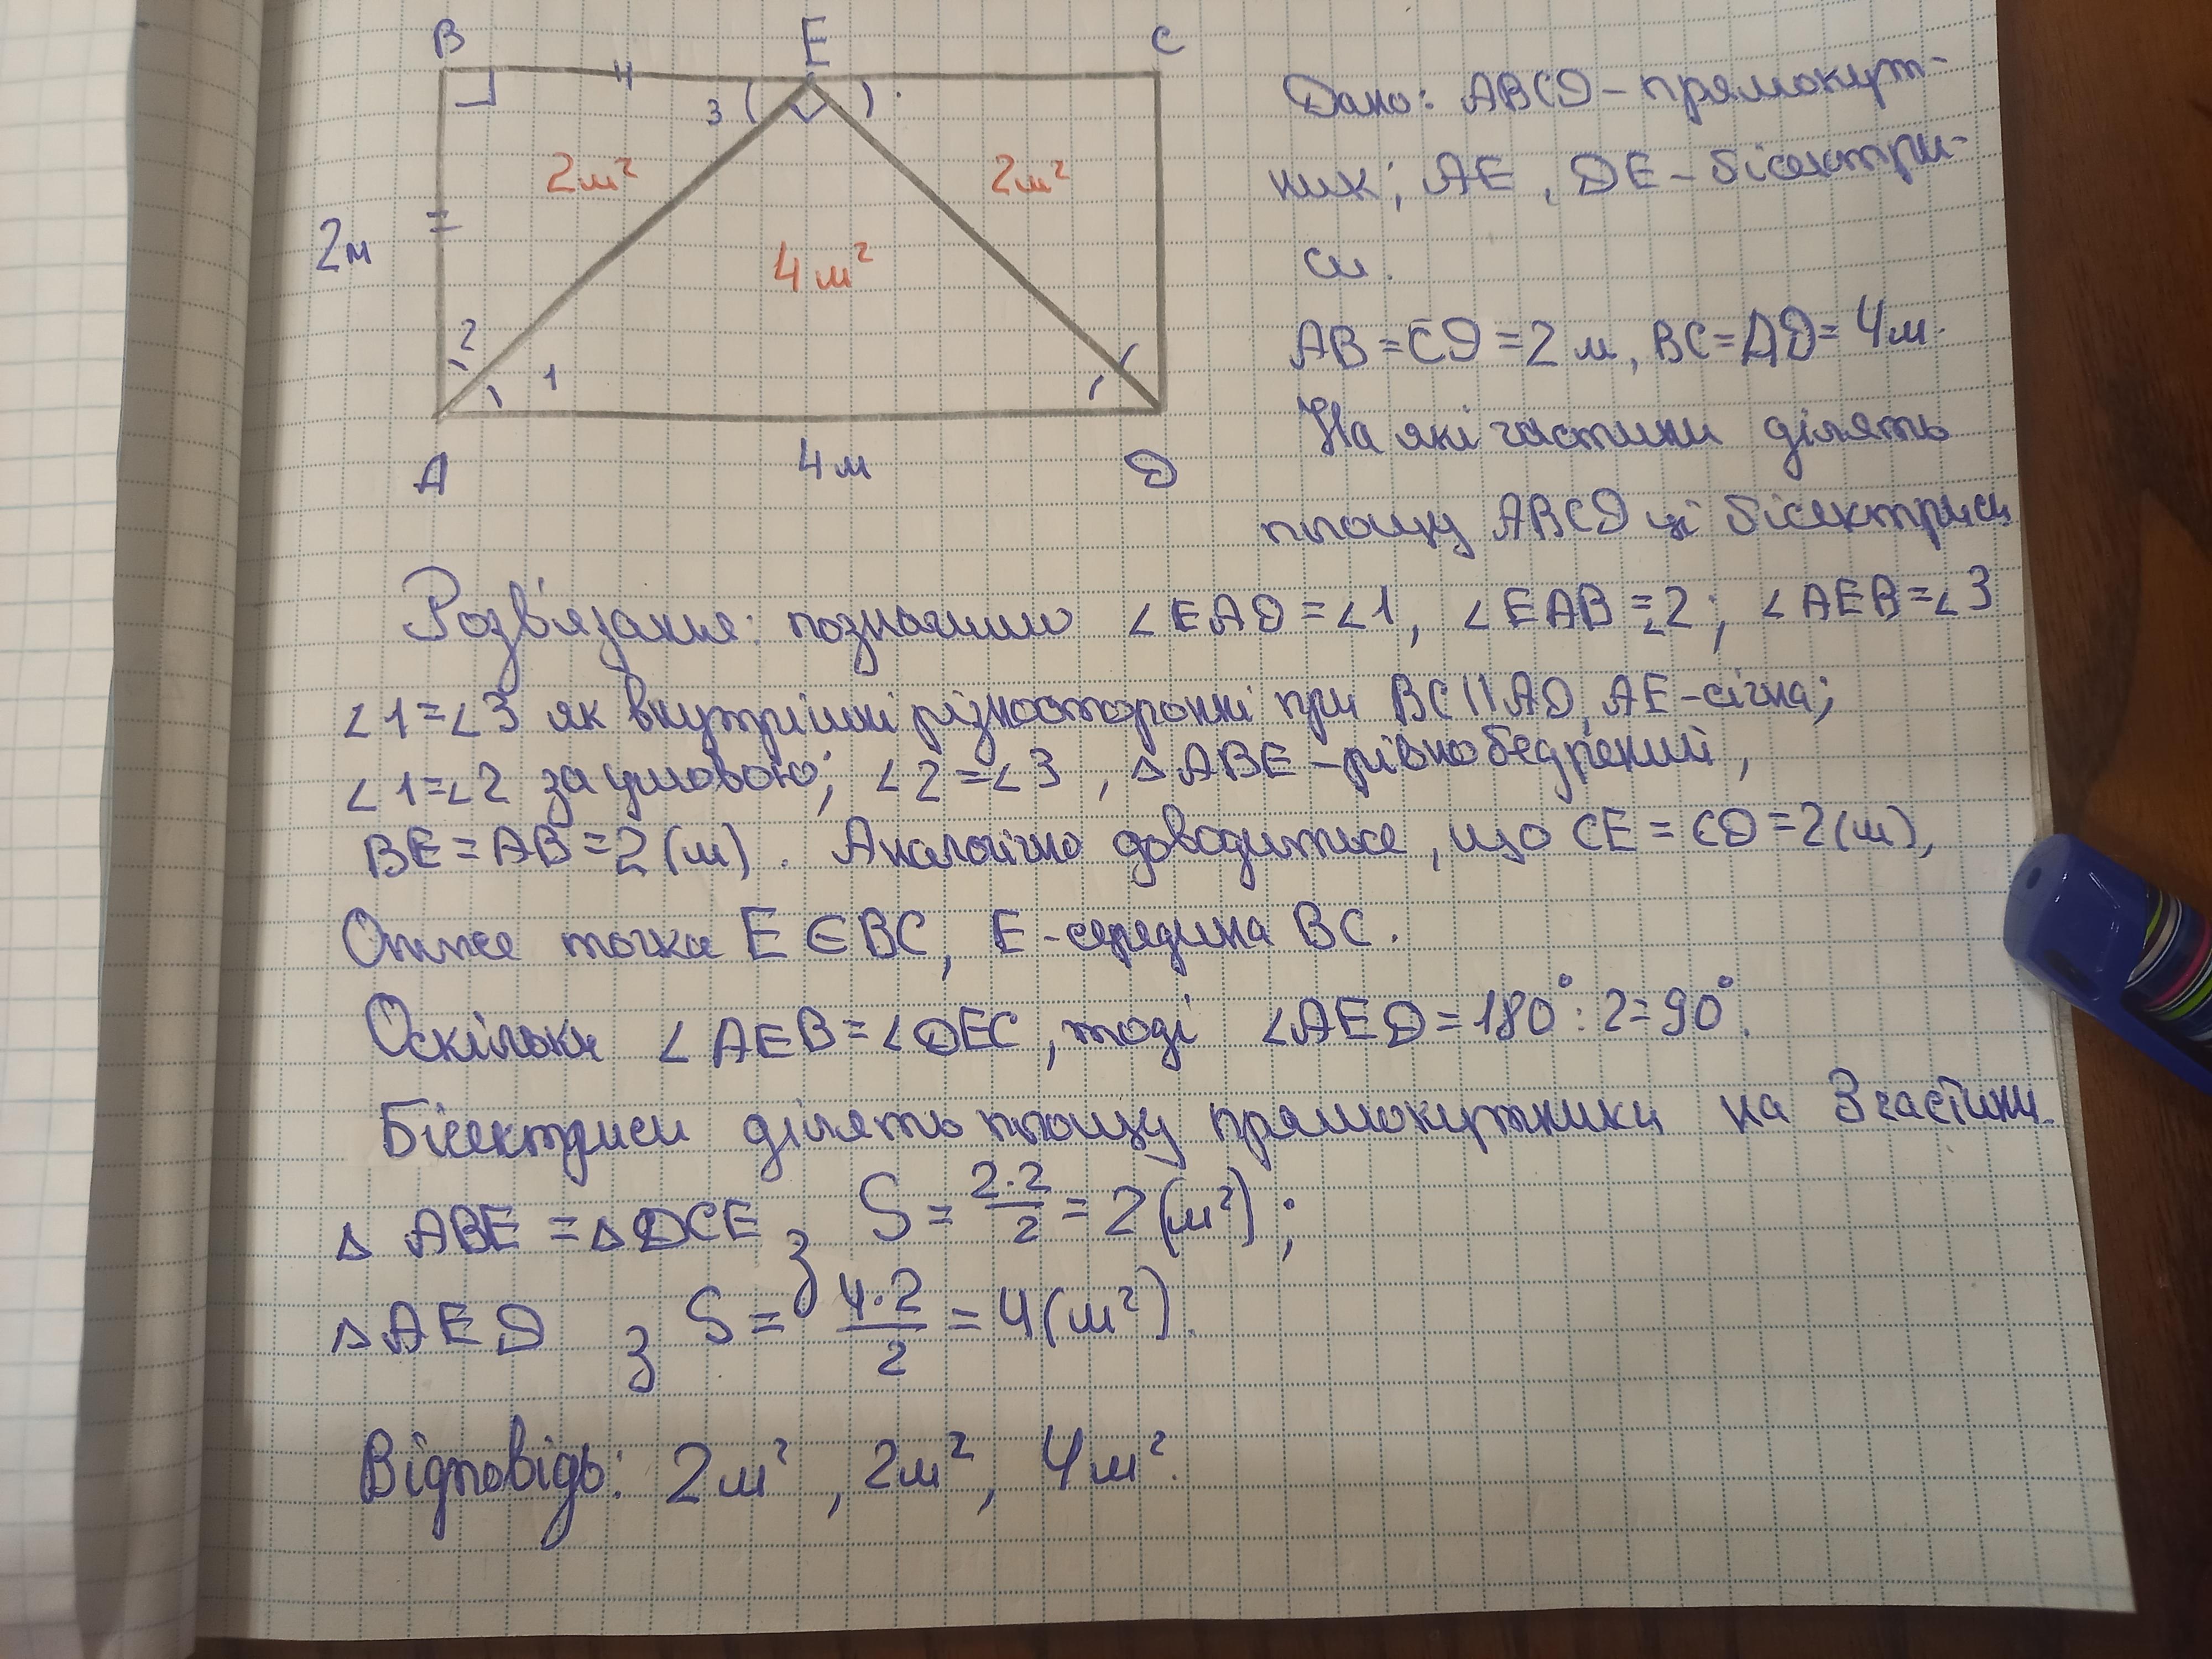 B E C
4
3
2м²
2м²
2м
4м²
2
1
A 4м D
Дано: ABCD - прямокут-
ник; AE, DE - бісектри-
си.
AB = CD = 2 м, BC = AD = 4м.
На які частини ділять
площу ABCD ці бісектриси
Розв'язання: позначимо ∠EAD = ∠1, ∠EAB = ∠2; ∠AEB = ∠3
∠1 = ∠3 як внутрішні різносторонні при BC || AD, AE - січна;
∠1 = ∠2 за умовою; ∠2 = ∠3, △ABE - рівнобедрений,
BE = AB = 2 (м). Аналогічно доводиться, що CE = CD = 2 (м),
Отже точка E ∈ BC, E - середина BC.
Оскільки ∠AEB = ∠DEC, тоді ∠AED = 180° : 2 = 90°.
Бісектриси ділять площу прямокутника на 3 частини.
△ABE = △DCE з S = 2·2/2 = 2 (м²);
△AED з S = 4·2/2 = 4 (м²).
Відповідь: 2м², 2м², 4м².